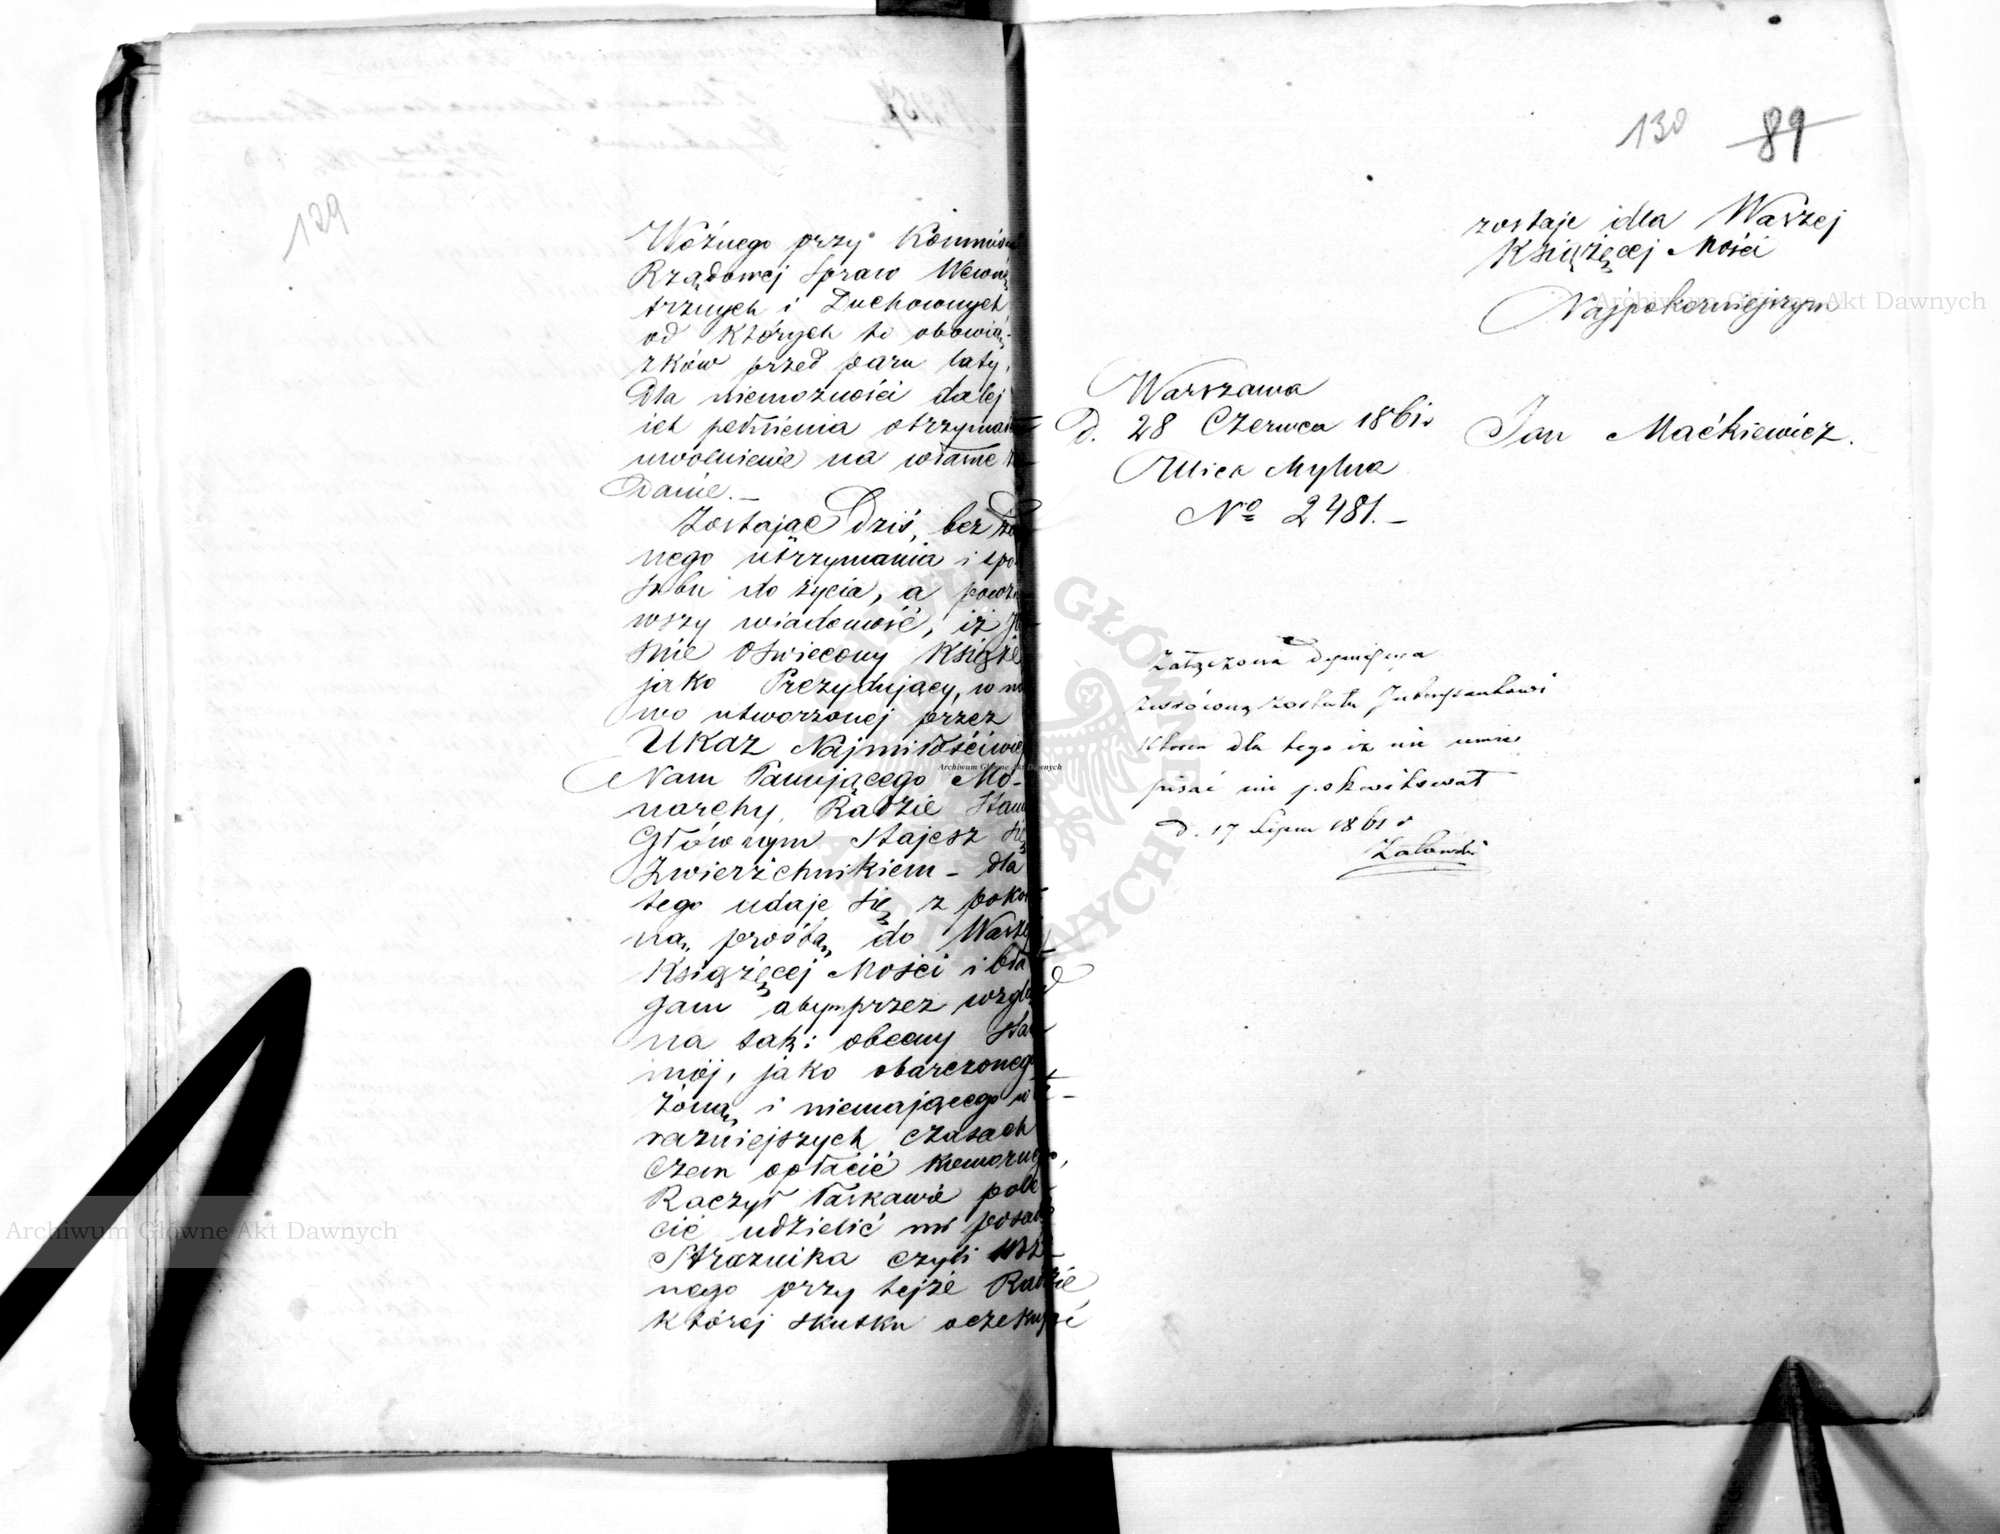 129
Woźnego przy Kommissyi
Rządowej Spraw Wewnę
trznych i Duchownych,
od których to obowią-
zków przed paru laty,
dla niemożności dalej
ich pełnienia otrzymałem
uwolnienie na własne żą-
danie.—
Zostając dziś, bez żad
nego utrzymania i spo-
sobu do życia, a powzią
wszy wiadomość, iż Ja-
śnie Oświecony Książe
jako Prezydujący, w no
wo utworzonej przez
Ukaz Najmiłościwiej
Nam Panującego Mo-
narchy, Radzie Stanu
Głównym stajesz się
Zwierzchnikiem – dla
tego udaje się z pokor
ną, prośbą, do Waszej
Książęcej Mości i bła
gam abym przez wzgląd
na tak: obecny stan
mój, jako obarczonego
żoną, i niemającego w te-
raźniejszych czasach
czem opłacić komornego,
Raczył łaskawie pole-
cić udzielić mi posadę
Strażnika czyli Woź-
nego przy tejże Radzie,
której skutku oczekując
130 89
zostaję dla Waszej
Książęcej Mości
Najpokorniejszym
Warszawa
d. 28 Czerwca 1861 r.
Ulica Mylna
No 2481.—
Jan Maćkiewicz.
Załączona dymisya
zwróconą została Interesantowi
który dla tego iż nie umie
pisać nie pokwitował
d. 17 Lipca 1861 r
Zalewski
Archiwum Główne Akt Dawnych
Archiwum Główne Akt Dawnych
Archiwum Główne Akt Dawnych